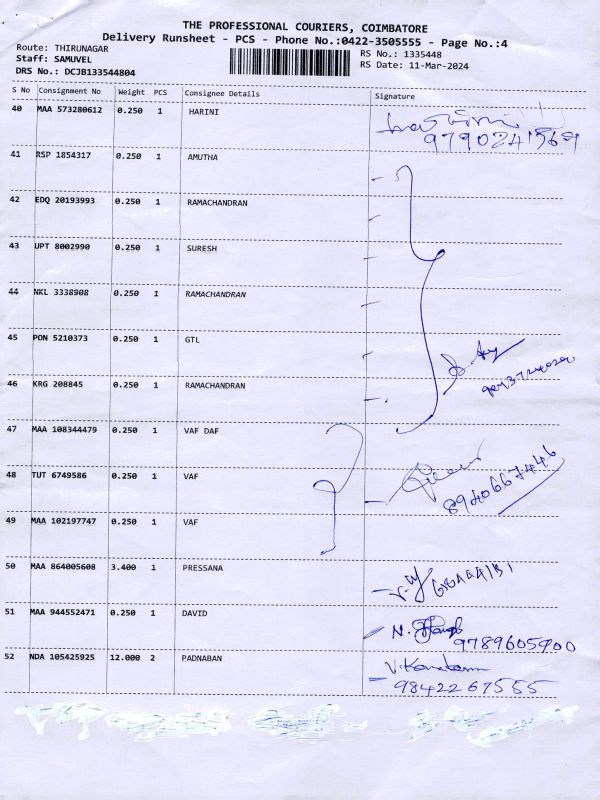 THE PROFESSIONAL COURIERS, COIMBATORE
Delivery Runsheet - PCS - Phone No.:0422-3505555 - Page No.:4
Route: THIRUNAGAR RS No.: 1335448
Staff: SAMUVEL RS Date: 11-Mar-2024
DRS No.: DCJB133544804
S No Consignment No Weight PCS Consignee Details Signature
40 MAA 573280612 0.250 1 HARINI
9790241569
41 RSP 1854317 0.250 1 AMUTHA
42 EDQ 20193993 0.250 1 RAMACHANDRAN
43 UPT 8002990 0.250 1 SURESH
44 NKL 3338908 0.250 1 RAMACHANDRAN
45 PON 5210373 0.250 1 GTL
46 KRG 208845 0.250 1 RAMACHANDRAN
47 MAA 108344479 0.250 1 VAF DAF
48 TUT 6749586 0.250 1 VAF
8940667446
49 MAA 102197747 0.250 1 VAF
50 MAA 864005608 3.400 1 PRESSANA
51 MAA 944552471 0.250 1 DAVID
9789605900
52 NDA 105425925 12.000 2 PADNABAN
9842267555